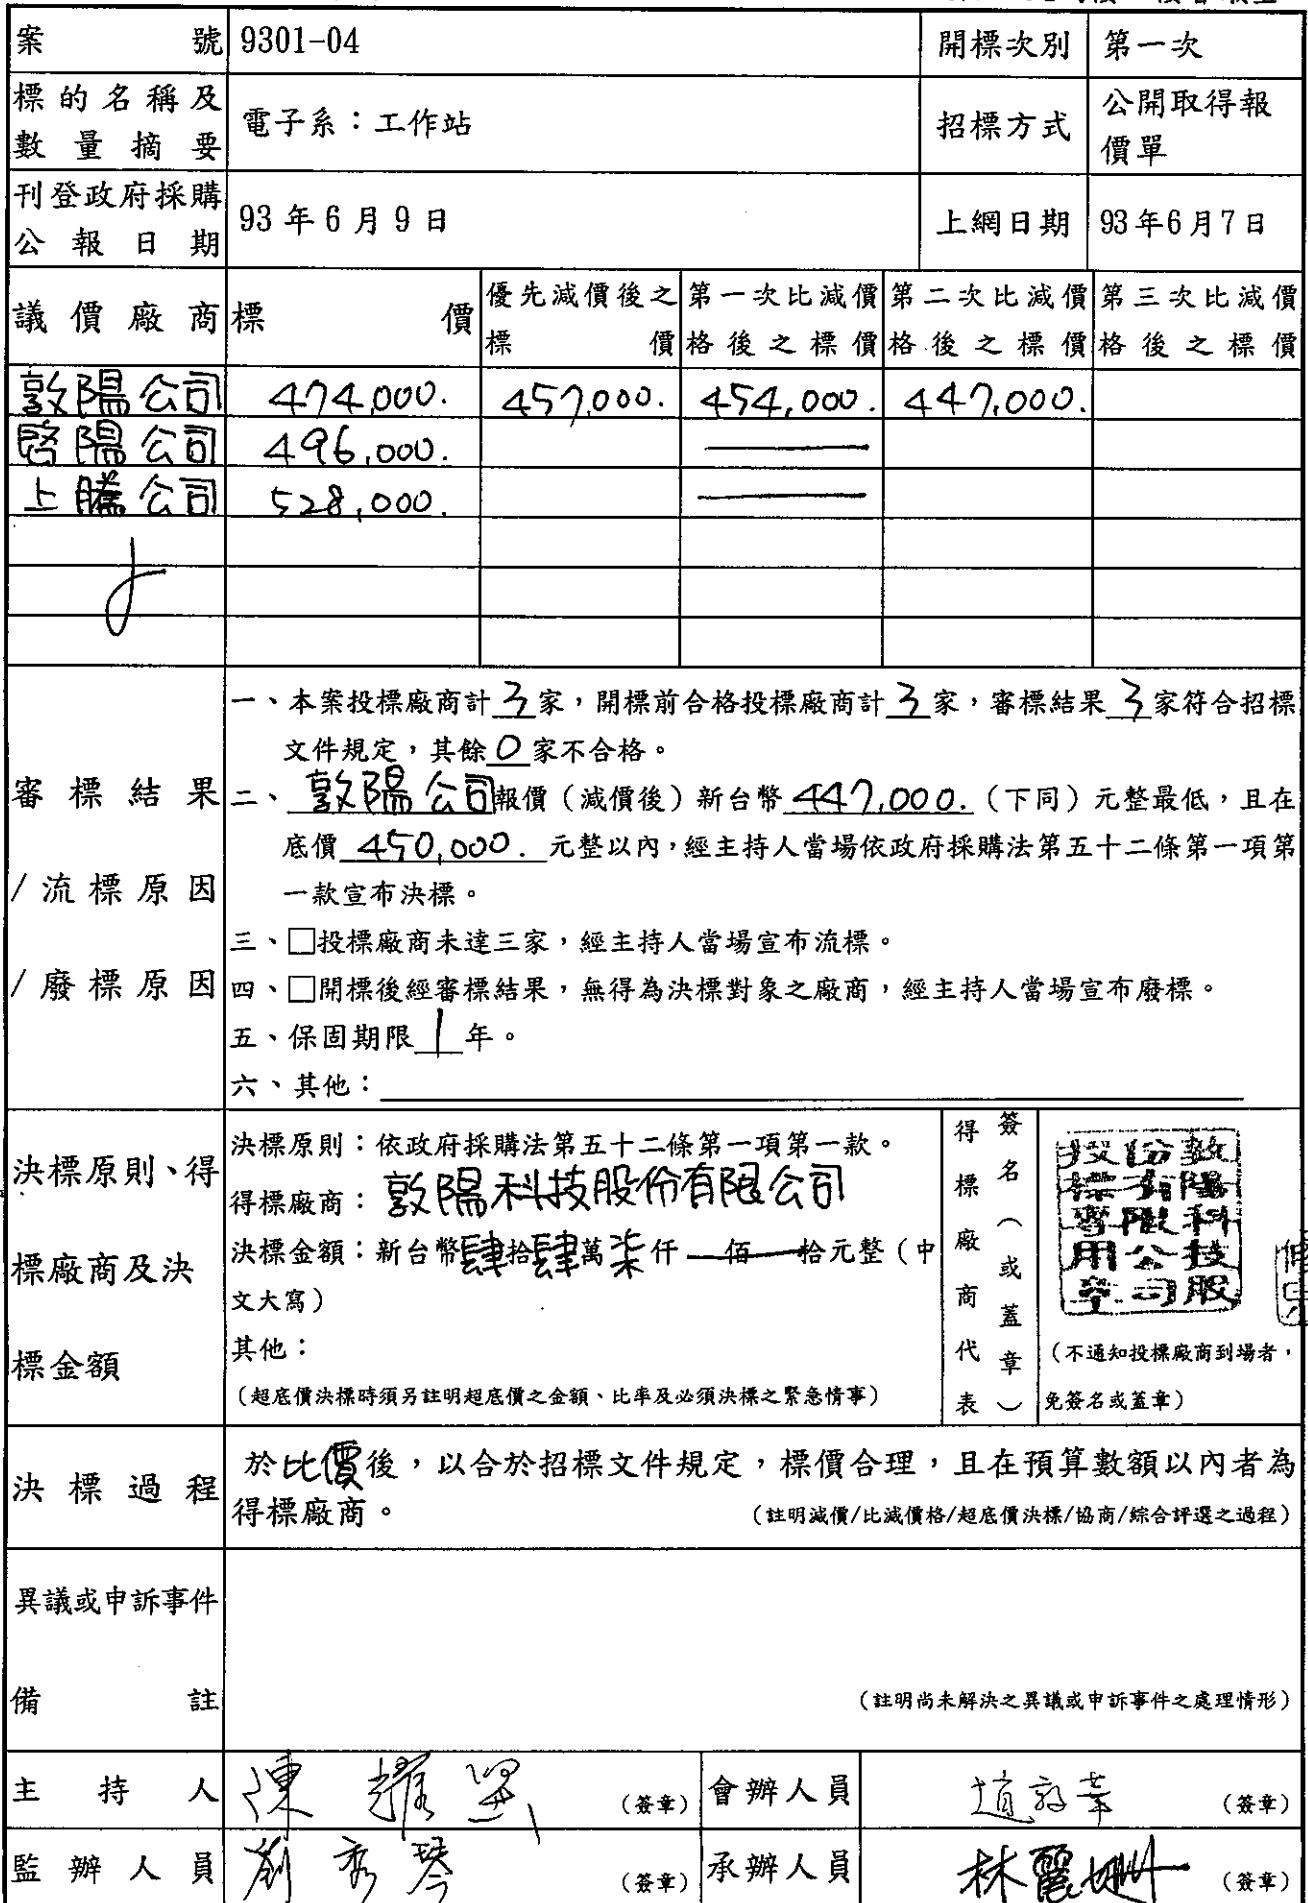 案號 9301-04 開標次別 第一次
標的名稱及數量摘要 電子系：工作站 招標方式 公開取得報價單
刊登政府採購公報日期 93年6月9日 上網日期 93年6月7日
議價廠商 標價 優先減價後之標價 第一次比減價格後之標價 第二次比減價格後之標價 第三次比減價格後之標價
敦陽公司 474,000. 457,000. 454,000. 447,000.
啓陽公司 496,000.
上騰公司 528,000.
審標結果/流標原因/廢標原因
一、本案投標廠商計3家，開標前合格投標廠商計3家，審標結果3家符合招標
文件規定，其餘0家不合格。
二、敦陽公司報價（減價後）新台幣447,000.（下同）元整最低，且在
底價450,000.元整以內，經主持人當場依政府採購法第五十二條第一項第
一款宣布決標。
三、□投標廠商未達三家，經主持人當場宣布流標。
四、□開標後經審標結果，無得為決標對象之廠商，經主持人當場宣布廢標。
五、保固期限1年。
六、其他：
決標原則、得標廠商及決標金額
決標原則：依政府採購法第五十二條第一項第一款。
得標廠商：敦陽科技股份有限公司
決標金額：新台幣肆拾肆萬柒仟佰拾元整（中
文大寫）
其他：
（超底價決標時須另註明超底價之金額、比率及必須決標之緊急情事）
得標廠商代表
簽名（或蓋章）
敦陽科技股
份有限公司
投標專用章
（不通知投標廠商到場者，
免簽名或蓋章）
決標過程
於比價後，以合於招標文件規定，標價合理，且在預算數額以內者為
得標廠商。
（註明減價/比減價格/超底價決標/協商/綜合評選之過程）
異議或申訴事件
備註
（註明尚未解決之異議或申訴事件之處理情形）
主持人 陳（簽章） 會辦人員 （簽章）
監辦人員 劉秀琴（簽章） 承辦人員 林麗姍（簽章）